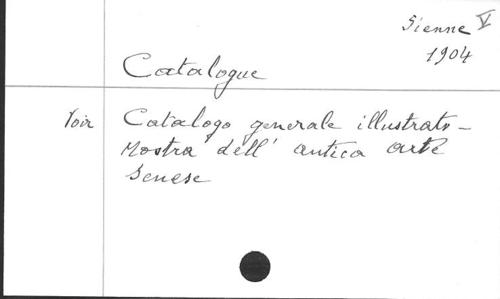 Sienne V
1904
Catalogue
Voir Catalogo generale illustrato -
Mostra dell' antica arte
senese